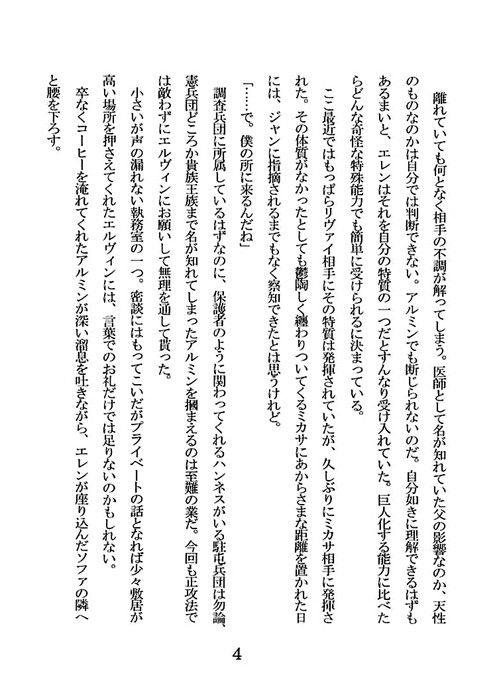 離れていても何となく相手の不調が解ってしまう。医師として名が知れていた父の影響なのか、天性
のものなのかは自分では判断できない。アルミンでも断じられないのだ。自分如きに理解できるはずも
あるまいと、エレンはそれを自分の特質の一つだとすんなり受け入れていた。巨人化する能力に比べた
らどんな奇怪な特殊能力でも簡単に受けられるに決まっている。
ここ最近ではもっぱらリヴァイ相手にその特質は発揮されていたが、久しぶりにミカサ相手に発揮さ
れた。その体質がなかったとしても鬱陶しく纏わりついてくるミカサにあからさまな距離を置かれた日
には、ジャンに指摘されるまでもなく察知できたとは思うけれど。
「……で。僕の所に来るんだね」
調査兵団に所属しているはずなのに、保護者のように関わってくれるハンネスがいる駐屯兵団は勿論、
憲兵団どころか貴族王族まで名が知れてしまったアルミンを摑まえるのは至難の業だ。今回も正攻法で
は敵わずにエルヴィンにお願いして無理を通して貰った。
小さいが声の漏れない執務室の一つ。密談にはもってこいだがプライベートの話となれば少々敷居が
高い場所を押さえてくれたエルヴィンには、言葉でのお礼だけでは足りないのかもしれない。
卒なくコーヒーを淹れてくれたアルミンが深い溜息を吐きながら、エレンが座り込んだソファの隣へ
と腰を下ろす。
4